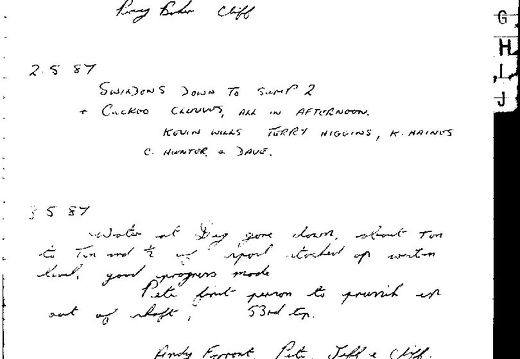 Cliff
G
H
I
J
2.5 87
SWILDONS DOWN TO SUMP 2
+ CUCKOO CLEEVES, ALL IN AFTERNOON.
KEVIN WILLS TERRY HIGGINS, K. HAINES
C. HUNTER & DAVE.
5 87
Water at Dig gone down, about Ton
to Ton and ½ of spoil stacked up
level, good progress made
Pete first person to prussik up
out of shaft, 53rd trip.
Andy Farrant, Pete, Jeff & Cliff.